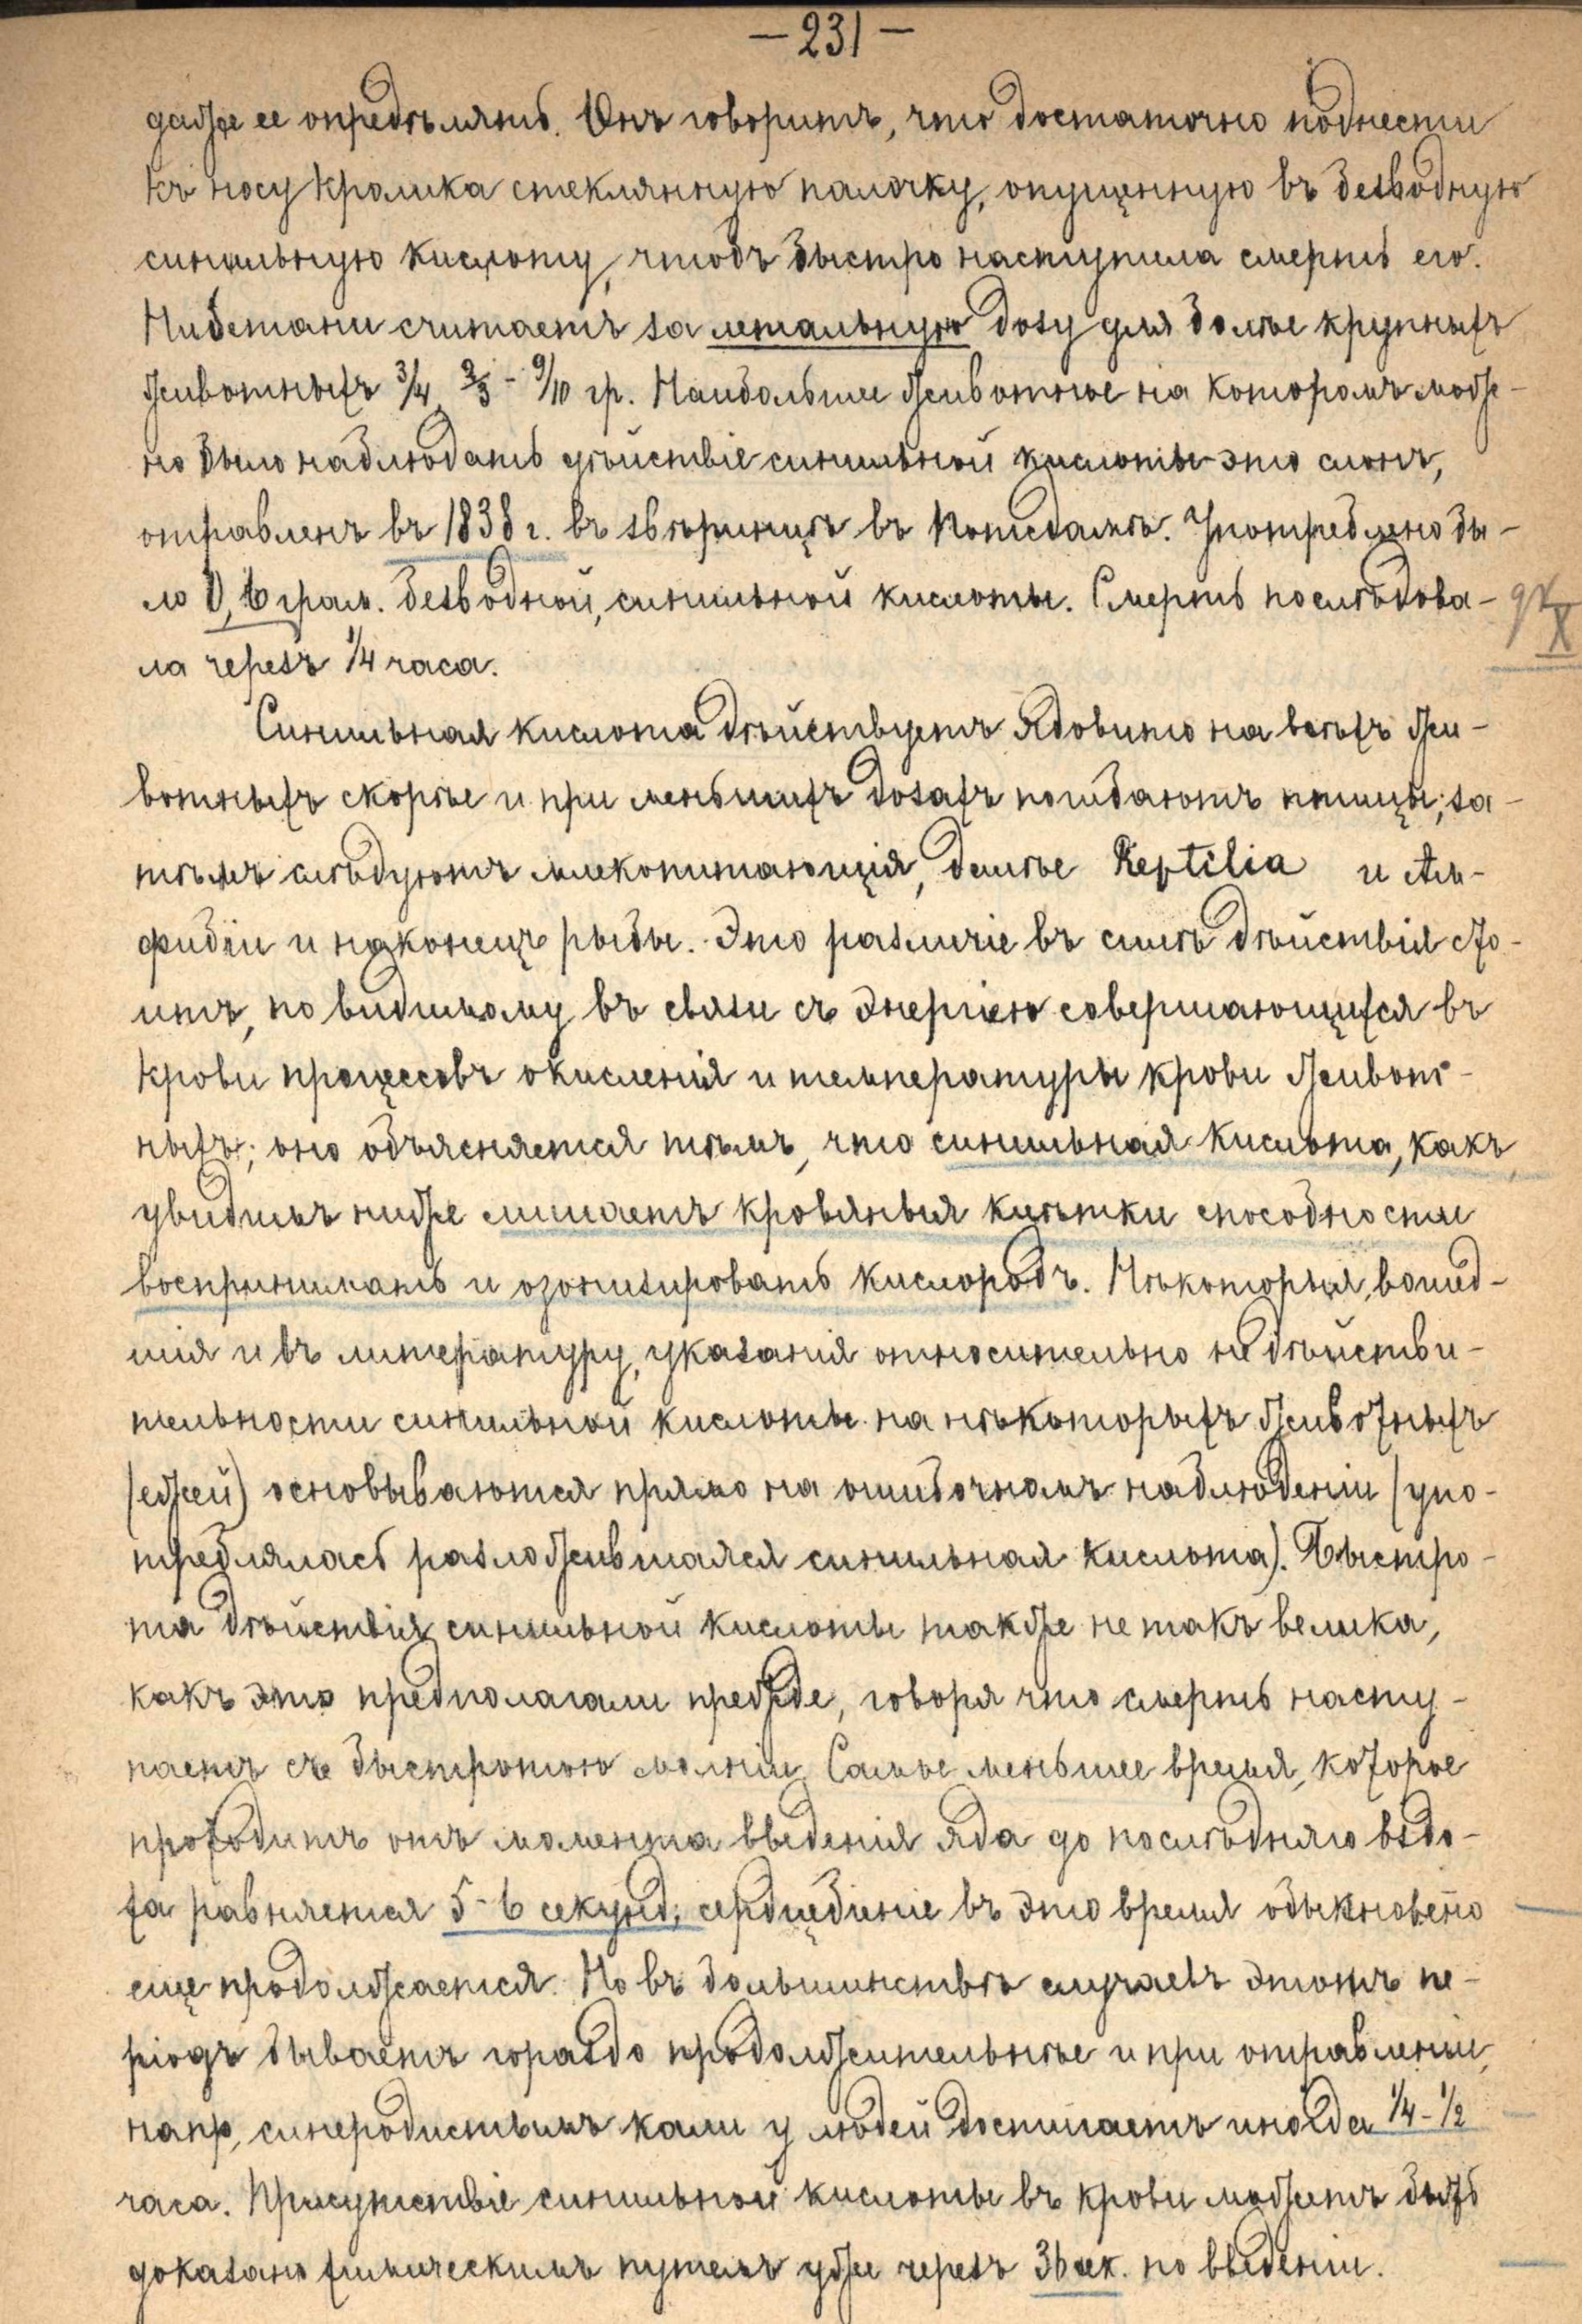 — 231 —
даже ее опредѣлять. Онъ говоритъ, что достаточно поднести
къ носу кролика стеклянную палочку, опущенную въ безводную
синильную кислоту, чтобъ быстро наступила смерть его.
считаетъ за летальную дозу для болѣе крупныхъ
животныхъ 3/4, 2/3 - 9/10 гр. Наибольшее животное на которомъ мож-
но было наблюдать дѣйствіе синильной кислоты это слонъ,
отравленъ въ 1838 г. въ звѣринцѣ въ Потсдамѣ. Употреблено бы-
ло 0,6 грам. безводной, синильной кислоты. Смерть послѣдова-
ла черезъ 1/4 часа.
Синильная кислота дѣйствуетъ ядовито на всѣхъ жи-
вотныхъ скорѣе и при меньшихъ дозахъ погибаютъ птицы; за-
тѣмъ слѣдуютъ млекопитающія, далѣе Reptilia и Ам-
фибіи и наконецъ рыбы. Это различіе въ силѣ дѣйствія сто-
итъ, по видимому въ связи съ энергіею совершающихся въ
крови процессовъ окисленія и температуры крови живот-
ныхъ; оно объясняется тѣмъ, что синильная кислота, какъ
увидимъ ниже лишаетъ кровяныя клѣтки способности
воспринимать и озонизировать кислородъ. Нѣкоторыя, вошед-
шія и въ литературу, указанія относительно недѣйстви-
тельности синильной кислоты на нѣкоторыхъ животныхъ
(ежей) основываются прямо на ошибочномъ наблюденіи (упо-
треблялась разложившаяся синильная кислота). Быстро-
та дѣйствія синильной кислоты также не такъ велика,
какъ это предполагали прежде, говоря что смерть насту-
паетъ съ быстротою молніи. Самое меньшее время, которое
проходитъ отъ момента введенія яда до послѣдняго вздо-
ха равняется 5-6 секунд; сердцебіеніе въ это время обыкновено
еще продолжается. Но въ большинствѣ случаевъ этотъ пе-
ріодъ бываетъ гораздо продолжительнѣе и при отравленіи,
напр, синеродистымъ кали у людей достигаетъ иногда 1/4 - 1/2
часа. Присутствіе синильной кислоты въ крови можетъ быть
доказано химическимъ путемъ уже черезъ 36 сек. по введеніи.